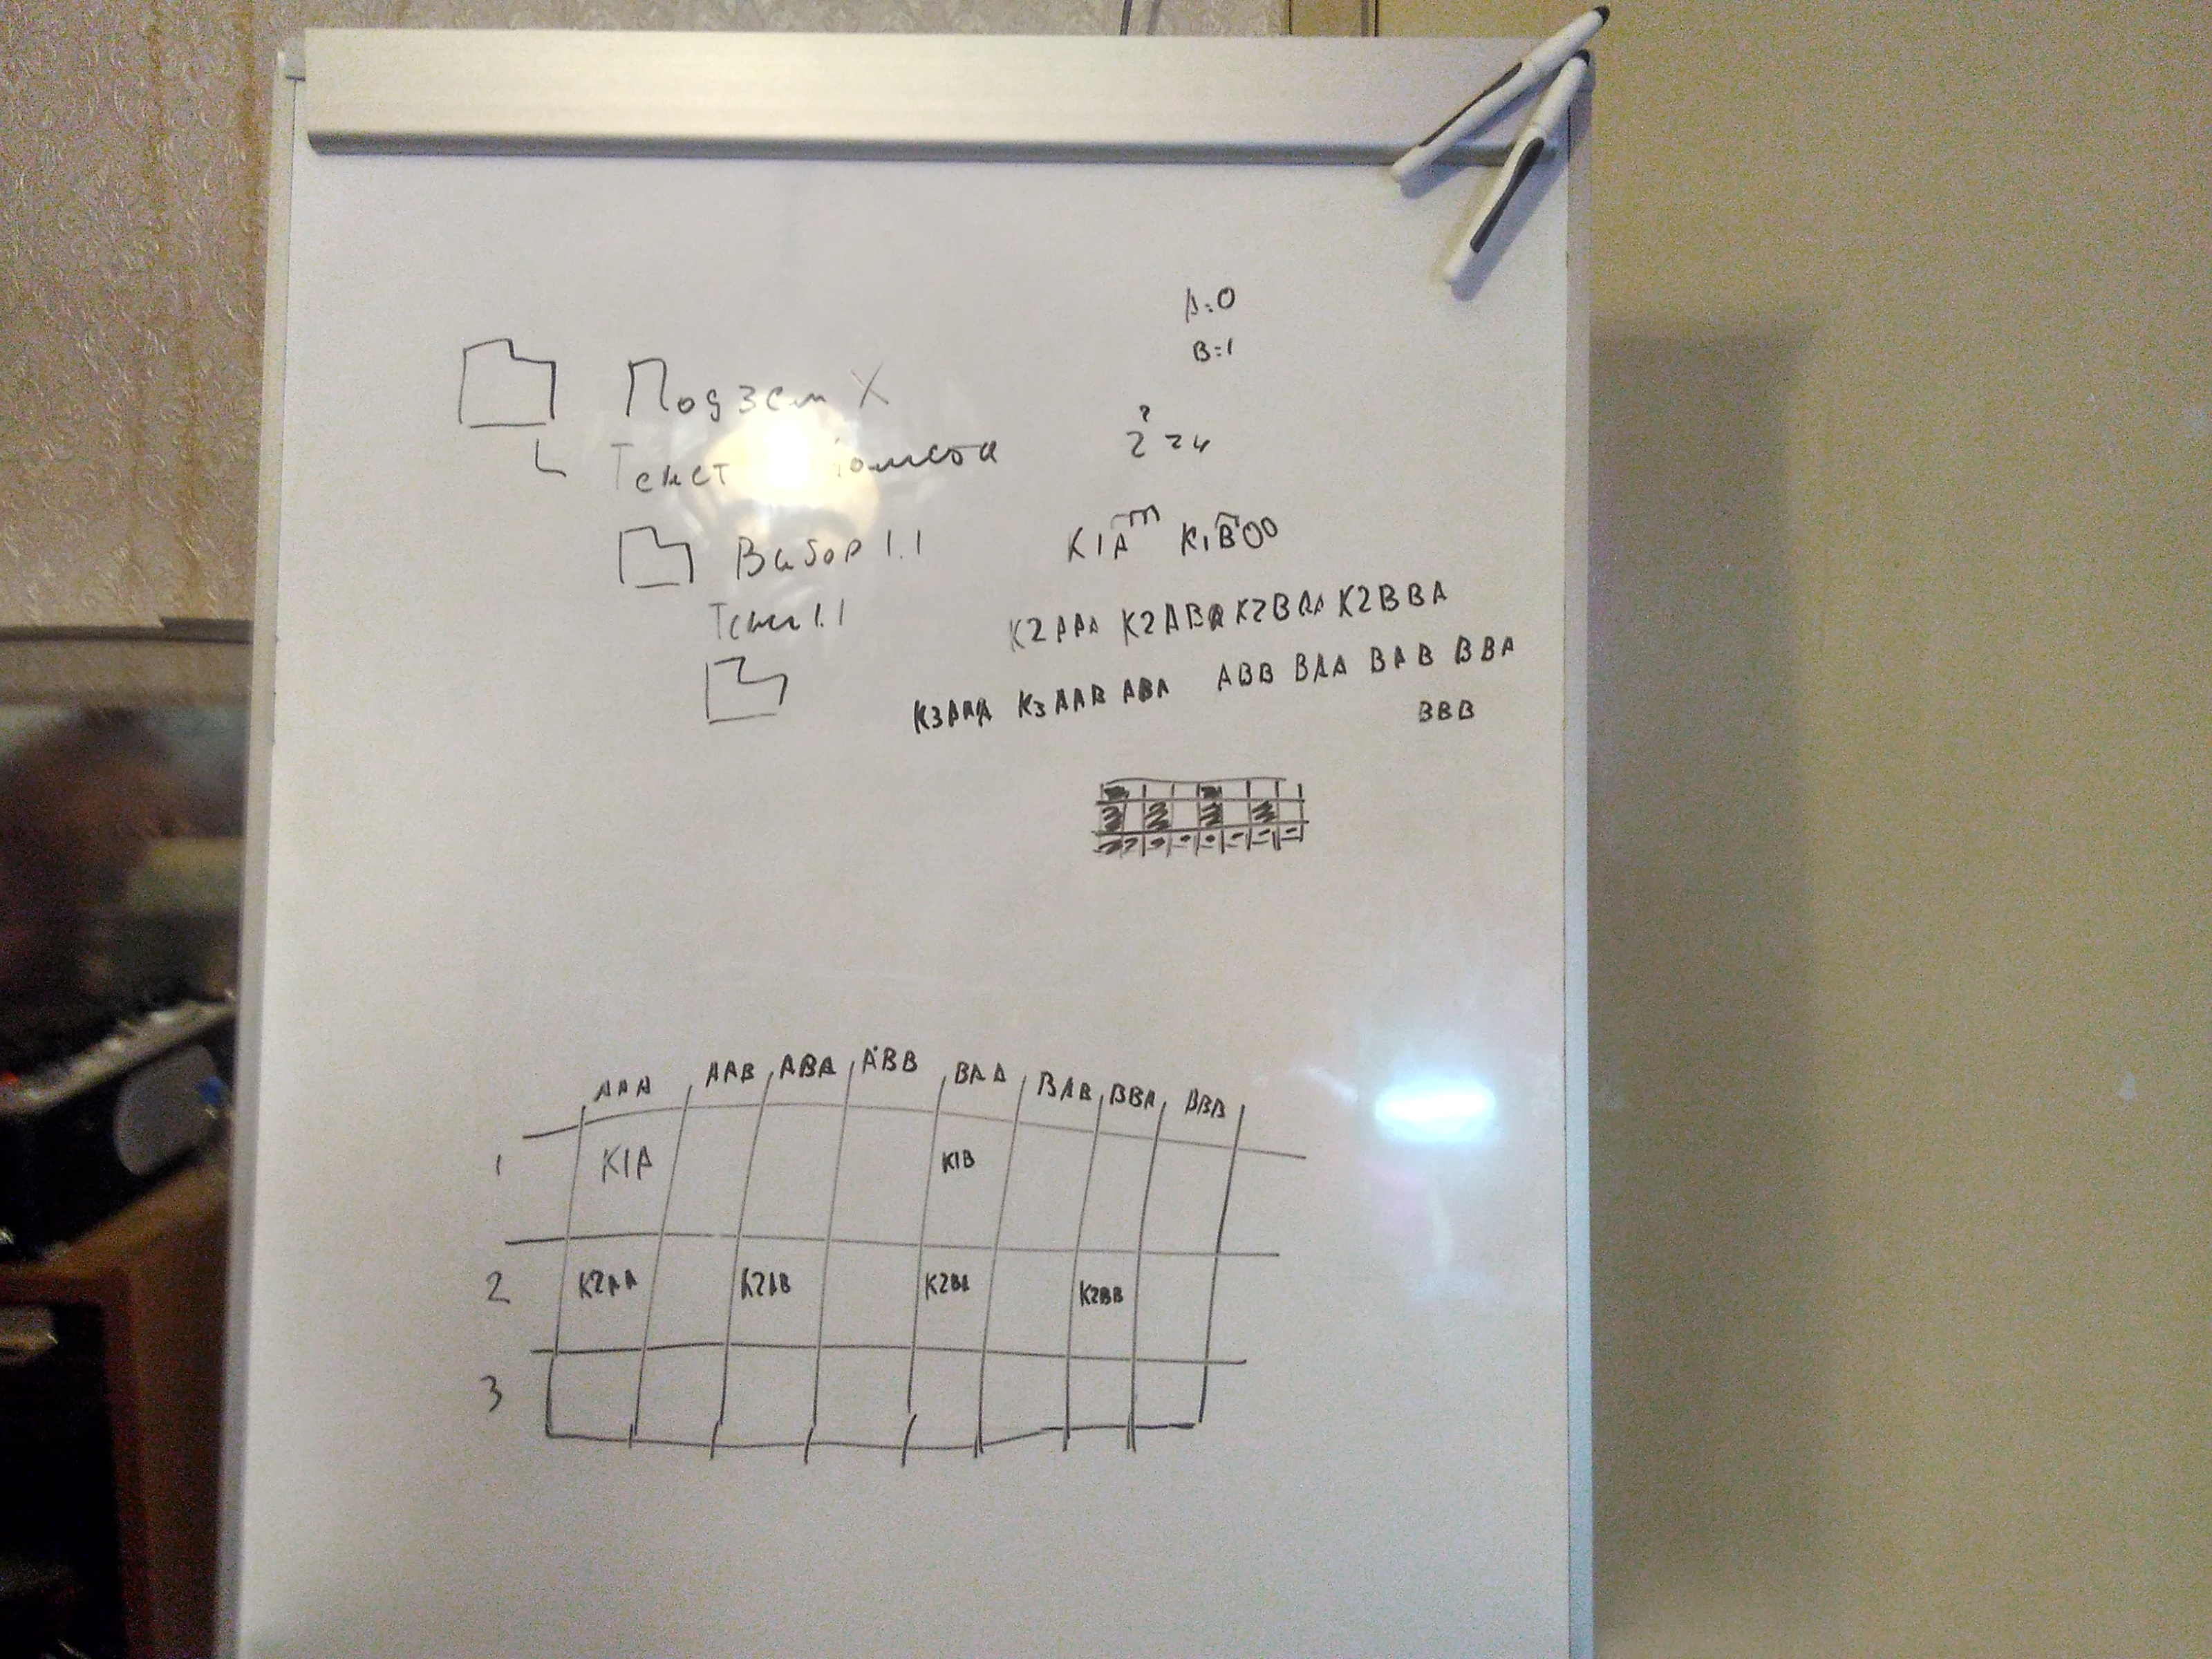 A=0
B=1
Подзем X
Текст
Выбор 1.1
K1A K1B00
Текст 1.1
K2AAA K2ABA K2BAA K2BBA
K3AAA K3AAB ABA ABB BAA BAB BBA
BBB
AAA AAB ABA ABB BAA BAB BBA BBB
1 K1A K1B
2 K2AA K2AB K2BA K2BB
3